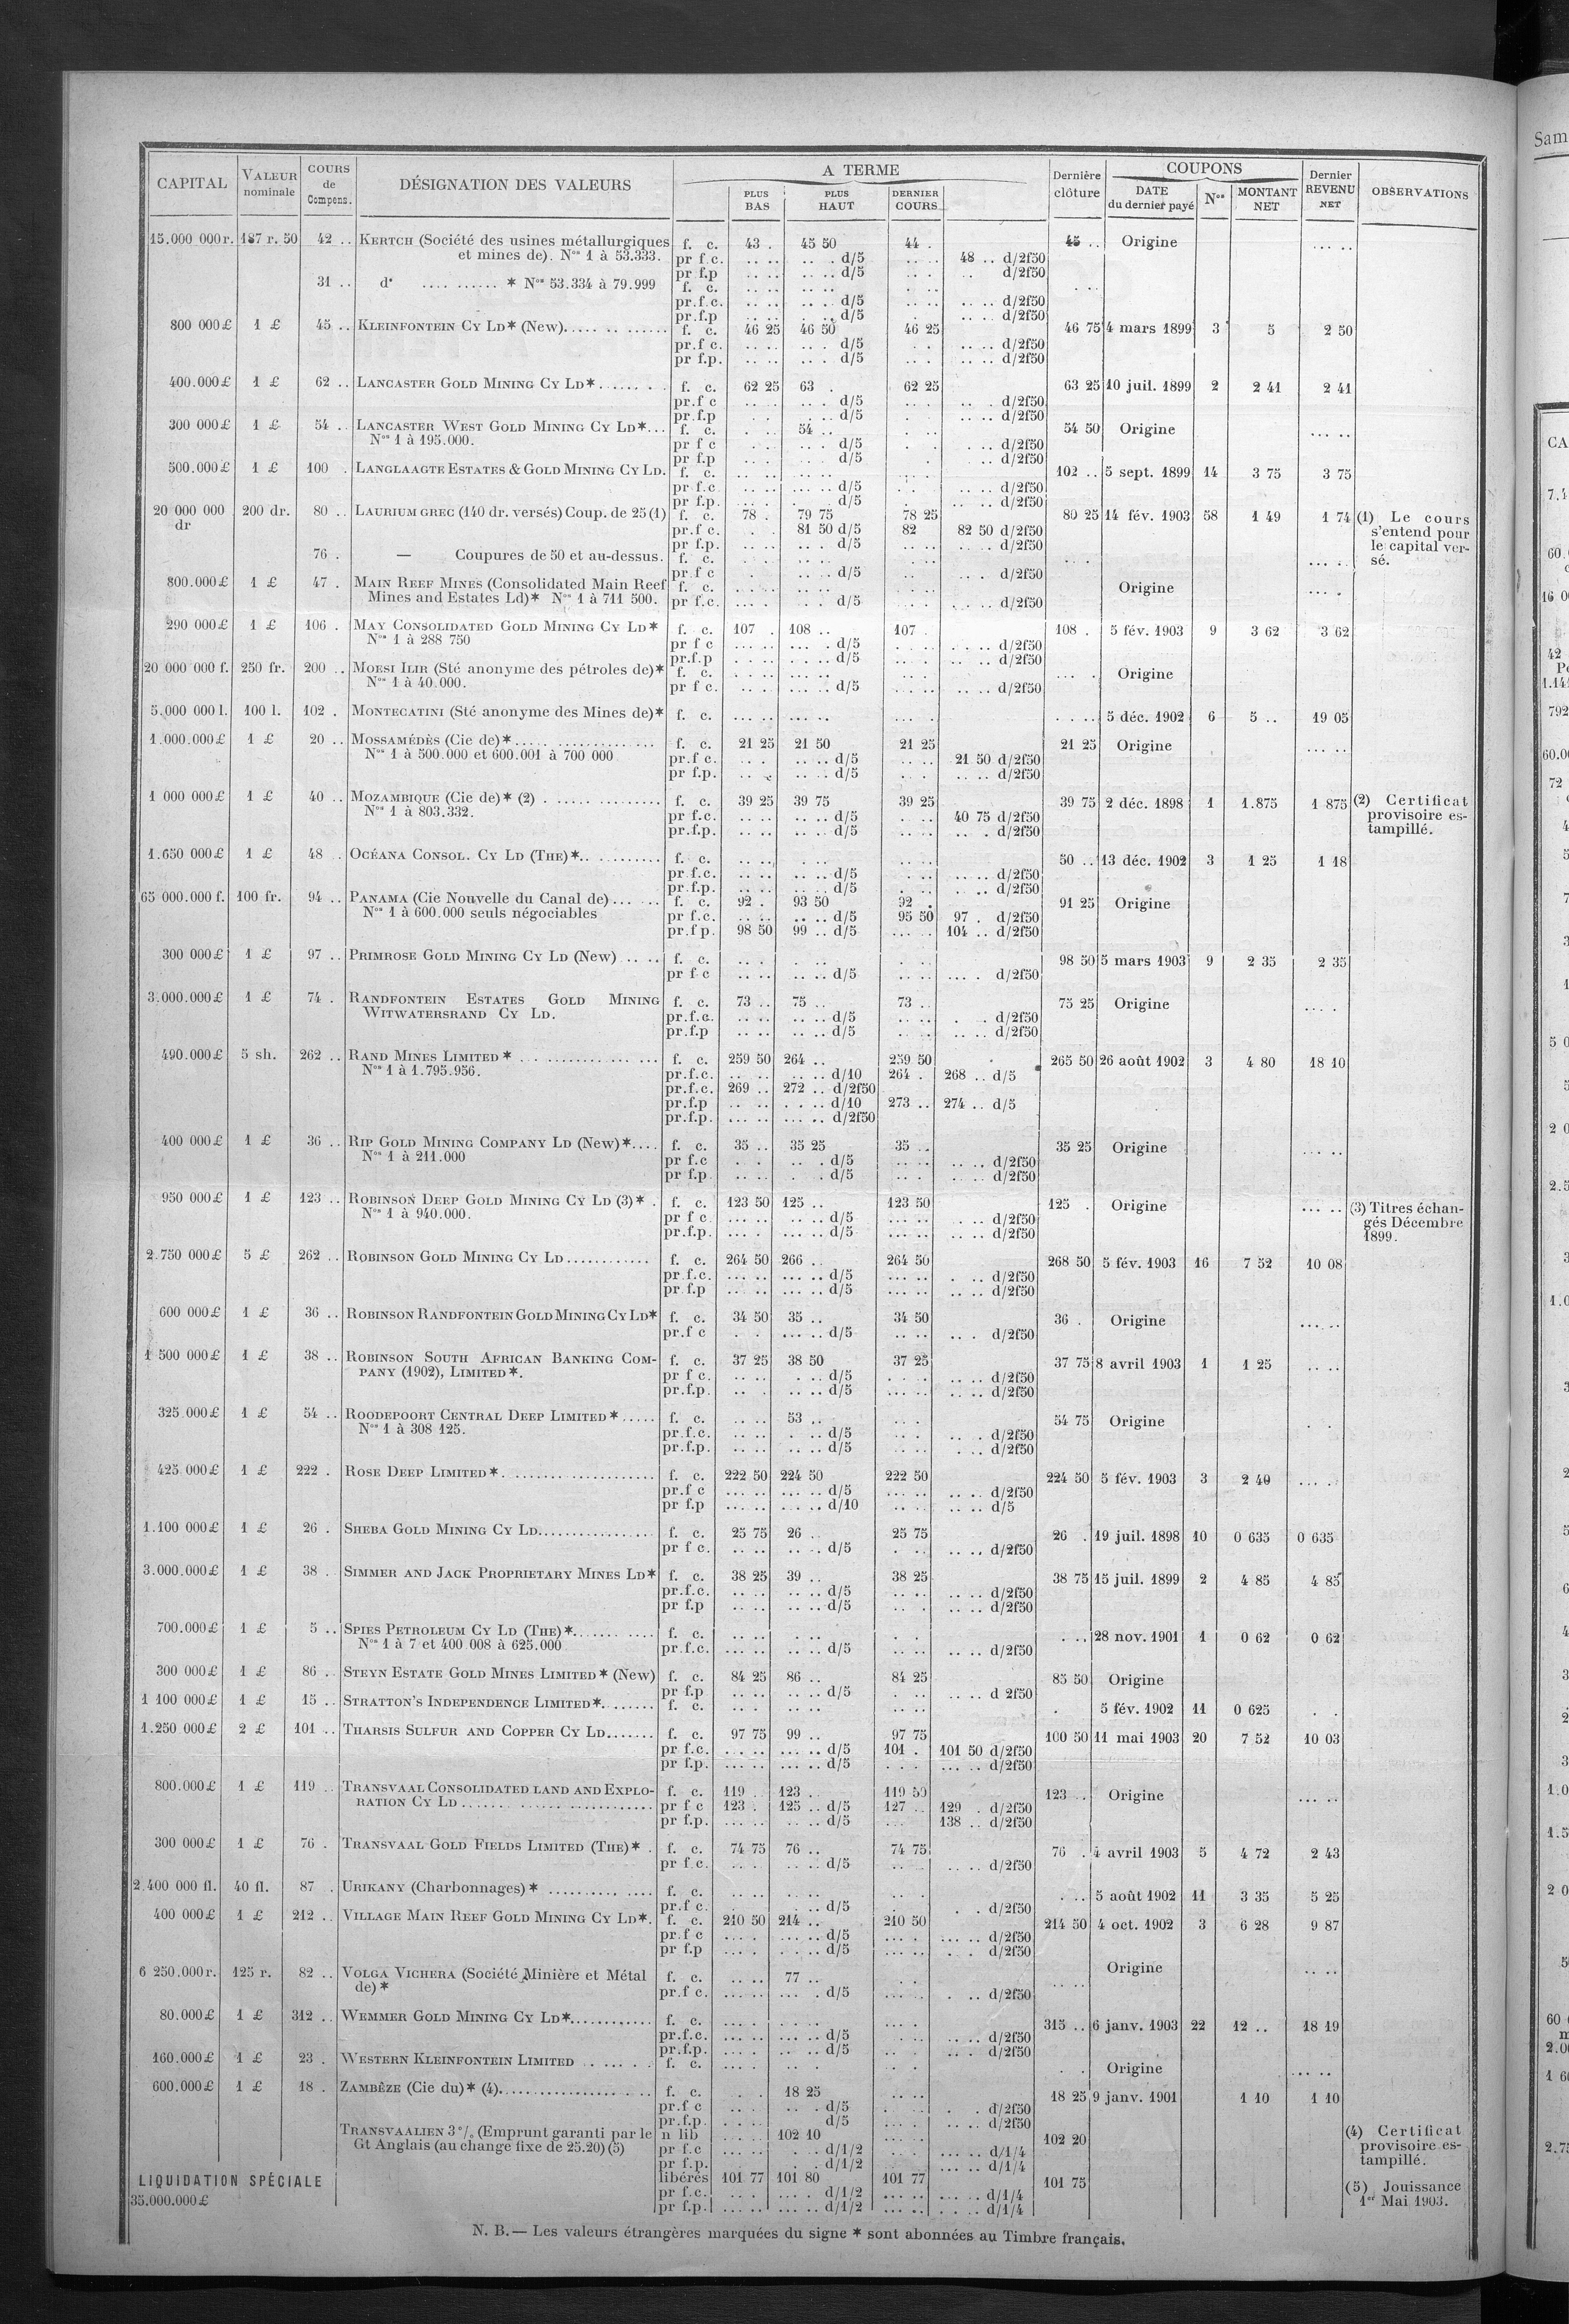 CAPITAL VALEUR nominale COURS de Compens. DÉSIGNATION DES VALEURS A TERME PLUS BAS PLUS HAUT DERNIER COURS Dernière clôture COUPONS DATE du dernier payé Nos MONTANT NET Dernier REVENU NET OBSERVATIONS
15.000 000 r. 187 r. 50 42 .. KERTCH (Société des usines métallurgiques f. c. 43 . 45 50 44 . 45 .. Origine ... ..
et mines de). Nos 1 à 53.333. pr f.c. .. .. .. . d/5 .. .. 48 .. d/2f50
pr f.p .. .. .. .. d/5 .. . .. d/2f50
31 .. d° .... ...... * Nos 53.334 à 79.999 f. c. .. .. .. .. . ..
pr.f.c. .. .. .. .. d/5 .. .. .. .. d/2f50
pr.f.p .. .. .. .. d/5 . .. .. .. d/2f50
800 000 £ 1 £ 45 .. KLEINFONTEIN CY LD* (New)..... f. c. 46 25 46 50 46 25 46 75 4 mars 1899 3 5 2 50
pr.f c. .. .. .. . d/5 . . .. .. d/2f50
pr f.p. .. .. .. . d/5 . . .. .. d/2f50
400.000 £ 1 £ 62 .. LANCASTER GOLD MINING CY LD*....... f. c. 62 25 63 . 62 25 63 25 10 juil. 1899 2 2 41 2 41
pr.f c .. . .. . d/5 .. . .. . d/2f50
pr.f.p . . . .. d/5 . . .. .. d/2f50
300 000 £ 1 £ 54 .. LANCASTER WEST GOLD MINING CY LD*... f. c. . .. 54 .. . .. 54 50 Origine ... ..
Nos 1 à 195.000. pr f c . . .. . d/5 . .. . .. d/2f50
pr f.p .. .. . .. d/5 . .. d/2f50
500.000 £ 1 £ 100 . LANGLAAGTE ESTATES & GOLD MINING CY LD. f. c. .. .. .. .. 102 .. 5 sept. 1899 14 3 75 3 75
pr f.c. .. .. ... .. d/5 . . .. .. d/2f50
pr f.p. .. .. ... .. d/5 . . .. .. d/2f50
20 000 000 dr 200 dr. 80 .. LAURIUM GREC (140 dr. versés) Coup. de 25 (1) f. c. 78 . 79 75 78 25 80 25 14 fév. 1903 58 1 49 1 74 (1) Le cours
pr.f c. . . 81 50 d/5 82 82 50 d/2f50 s'entend pour
pr f.p. .. .. .. . d/5 .. .. .. .. d/2f50 le capital ver-
76 . — Coupures de 50 et au-dessus. f. c. .. .. .. .. . .. ... .. sé.
pr.f c . .. .. d/5 .. .. . d/2f50
800.000 £ 1 £ 47 . MAIN REEF MINES (Consolidated Main Reef f. c. .. .. .. .. Origine ... .
Mines and Estates Ld)* Nos 1 à 711 500. pr f.c. ... . . . d/5 . .. .. d/2f50
290 000 £ 1 £ 106 . MAY CONSOLIDATED GOLD MINING CY LD* f. c. 107 . 108 .. 107 . 108 . 5 fév. 1903 9 3 62 3 62
Nos 1 à 288 750 pr f c ... .. ... . d/5 . .. . .. .. d/2f50
pr.f.p . .. .. .. .. d/5 . .. .. .. d/2f50
20 000 000 f. 250 fr. 200 .. MOESI ILIR (Sté anonyme des pétroles de)* f. c. .. .. .. .. ... . Origine
Nos 1 à 40.000. pr f c. .. . ... .. d/5 .. .. .. .. d/2f50
5.000 000 l. 100 l. 102 . MONTECATINI (Sté anonyme des Mines de)* f. c. ... .. ... .. ... . . .. . 5 déc. 1902 6 5 .. 19 05
1.000.000 £ 1 £ 20 .. MOSSAMÉDÈS (Cie de)*..... f. c. 21 25 21 50 21 25 21 25 Origine ... ..
Nos 1 à 500.000 et 600.001 à 700 000 pr.f c. .. . .. .. d/5 .. .. 21 50 d/2f50
pr f.p. .. . .. .. d/5 .. . .. .. d/2f50
1 000 000 £ 1 £ 40 .. MOZAMBIQUE (Cie de)* (2) . ............... f. c. 39 25 39 75 39 25 39 75 2 déc. 1898 1 1.875 1 875 (2) Certificat
Nos 1 à 803.332. pr f.c. .. .. .. .. d/5 . .. 40 75 d/2f50 provisoire es-
pr.f.p. .. .. .. .. d/5 .. .. .. . d/2f50 tampillé.
1.650 000 £ 1 £ 48 . OCÉANA CONSOL. CY LD (THE)*.. ......... f. c. .. .. . .. .. .. 50 .. 13 déc. 1902 3 1 25 1 18
pr f.c. .. .. .. .. d/5 .. . .. .. d/2f50
pr.f.p. .. .. .. .. d/5 . .. . .. d/2f50
65 000.000 f. 100 fr. 94 .. PANAMA (Cie Nouvelle du Canal de)... .. f. c. 92 . 93 50 92 . 91 25 Origine
Nos 1 à 600.000 seuls négociables pr f.c. .. .. .. .. d/5 95 50 97 . d/2f50
pr.f p. 98 50 99 .. d/5 ... .. 104 .. d/2f50
300 000 £ 1 £ 97 .. PRIMROSE GOLD MINING CY LD (New) .. .. f. c. .. . . .. . .. 98 50 5 mars 1903 9 2 35 2 35
pr f c .. .. .. .. d/5 .. .. ... . d/2f50
3.000.000 £ 1 £ 74 . RANDFONTEIN ESTATES GOLD MINING f. c. 73 .. 75 .. 73 .. 75 25 Origine ... .
WITWATERSRAND CY LD. pr.f.c. .. .. .. .. d/5 .. .. . .. d/2f50
pr.f.p .. .. .. .. d/5 .. . .. .. d/2f50
490.000 £ 5 sh. 262 .. RAND MINES LIMITED * . ............... ... f. c. 259 50 264 .. 259 50 265 50 26 août 1902 3 4 80 18 10
Nos 1 à 1.795.956. pr.f.c. .. .. .. .. d/10 264 . 268 .. d/5
pr.f.c. 269 .. 272 .. d/2f50
pr.f.p .. .. . .. .. d/10 273 .. 274 .. d/5
pr.f.p. ... .. ... .. d/2f50
400 000 £ 1 £ 36 .. RIP GOLD MINING COMPANY LD (New)*.... f. c. 35 .. 35 25 35 .. 35 25 Origine ... ..
Nos 1 à 211.000 pr f.c . . .. . d/5 .. .. .. .. d/2f50
pr f.p. .. .. .. . d/5 .. . .. .. d/2f50
950 000 £ 1 £ 123 .. ROBINSON DEEP GOLD MINING CY LD (3)* . f. c. 123 50 125 .. 123 50 125 . Origine ... .. (3) Titres échan-
Nos 1 à 940.000. pr f c. ... .. .. .. d/5 ... .. . .. .. d/2f50 gés Décembre
pr.f.p. ... . ... .. d/5 ... .. .. .. d/2f50 1899.
2.750 000 £ 5 £ 262 .. ROBINSON GOLD MINING CY LD............ f. c. 264 50 266 .. 264 50 268 50 5 fév. 1903 16 7 52 10 08
pr.f.c. ... .. ... .. d/5 ... .. . .. d/2f50
pr f.p ... .. ... .. d/5 ... .. .. .. d/2f50
600 000 £ 1 £ 36 .. ROBINSON RANDFONTEIN GOLD MINING CY LD* f. c. 34 50 35 .. 34 50 36 . Origine ... ..
pr.f c . . ... .. d/5 .. .. .. . d/2f50
1 500 000 £ 1 £ 38 .. ROBINSON SOUTH AFRICAN BANKING COM- f. c. 37 25 38 50 37 25 37 75 8 avril 1903 1 1 25 .. ..
PANY (1902), LIMITED*. pr f c. .. .. . .. d/5 . . .. .. d/2f50
pr.f.p. .. . .. .. d/5 ... .. .. .. d/2f50
325.000 £ 1 £ 54 .. ROODEPOORT CENTRAL DEEP LIMITED*..... f. c. .. .. 53 .. .. . 54 75 Origine . .
Nos 1 à 308 125. pr.f.c. .. .. . .. d/5 .. . .. . d/2f50
pr.f.p. .. .. .. .. d/5 .. .. . .. d/2f50
425.000 £ 1 £ 222 . ROSE DEEP LIMITED*. .................... f. c. 222 50 224 50 222 50 224 50 5 fév. 1903 3 2 40 ... .
pr.f c ... .. ... .. d/5 ... .. .. .. d/2f50
pr f.p ... .. ... .. d/10 .. . .. .. d/5
1.100 000 £ 1 £ 26 . SHEBA GOLD MINING CY LD................ f. c. 25 75 26 .. 25 75 26 . 19 juil. 1898 10 0 635 0 635
pr f c. .. .. .. .. d/5 . .. .. .. d/2f50
3.000.000 £ 1 £ 38 . SIMMER AND JACK PROPRIETARY MINES LD* f. c. 38 25 39 .. 38 25 38 75 15 juil. 1899 2 4 85 4 85
pr.f.c. .. .. .. .. d/5 .. .. .. .. d/2f50
pr f.p .. .. .. .. d/5 .. . .. .. d/2f50
700.000 £ 1 £ 5 .. SPIES PETROLEUM CY LD (THE)*........ .... f. c. .. .. . .. . . . .. 28 nov. 1901 1 0 62 0 62
Nos 1 à 7 et 400 008 à 625.000 pr.f.c. .. .. .. .. d/5 .. .. .. .. d/2f50
300 000 £ 1 £ 86 .. STEYN ESTATE GOLD MINES LIMITED* (New) f. c. 84 25 86 .. 84 25 85 50 Origine
pr f.p .. .. .. .. d/5 . .. .. .. d 2f50
1 100 000 £ 1 £ 15 .. STRATTON'S INDEPENDENCE LIMITED*. ...... f. c. .. .. .. .. .. .. . 5 fév. 1902 11 0 625 . .
1.250 000 £ 2 £ 101 .. THARSIS SULFUR AND COPPER CY LD....... f. c. 97 75 99 .. 97 75 100 50 11 mai 1903 20 7 52 10 03
pr f.c. . .. .. ... .. d/5 101 . 101 50 d/2f50
pr f.p. ... .. ... .. d/5 . . ... .. d/2f50
800.000 £ 1 £ 119 .. TRANSVAAL CONSOLIDATED LAND AND EXPLO- f. c. 119 . 123 . 119 50 123 .. Origine ... ..
RATION CY LD ....... pr f c 123 . 125 .. d/5 127 .. 129 . d/2f50
pr f.p. ... .. .. .. d/5 ... 138 .. d/2f50
300 000 £ 1 £ 76 . TRANSVAAL GOLD FIELDS LIMITED (THE)* . f. c. 74 75 76 .. 74 75 76 . 4 avril 1903 5 4 72 2 43
pr f.c. .. . .. .. d/5 .. . .. .. d/2f50
2.400 000 fl. 40 fl. 87 . URIKANY (Charbonnages)* .......... .... f. c. .. .. .. .. .. . . .. 5 août 1902 11 3 35 5 25
pr.f c. . . .. d/5 . . . d/2f50
400 000 £ 1 £ 212 .. VILLAGE MAIN REEF GOLD MINING CY LD*. f. c. 210 50 214 .. 210 50 214 50 4 oct. 1902 3 6 28 9 87
pr.f c ... . ... .. d/5 ... . ... .. d/2f50
pr f.p ... . . .. .. d/5 ... . .. . d/2f50
6 250.000 r. 125 r. 82 .. VOLGA VICHERA (Société Minière et Métal f. c. .. .. 77 .. . . .. .. Origine .. ..
de)* pr.f c. ... .. ... . d/5 ... .. . .. d/2f50
80.000 £ 1 £ 312 .. WEMMER GOLD MINING CY LD*............ f. c. ... . . .. . ... . 315 .. 6 janv. 1903 22 12 .. 18 19
pr.f.c. ... .. ... .. d/5 ... . .. .. d/2f50
pr.f.p. ... .. ... .. d/5 .. . .. . d/2f50
160.000 £ 1 £ 23 . WESTERN KLEINFONTEIN LIMITED .. ... . . f. c. ... . .. . ... . . . Origine ... ..
600.000 £ 1 £ 18 . ZAMBÈZE (Cie du)* (4)...................... f. c. . . 18 25 .. .. 18 25 9 janv. 1901 1 10 1 10
pr.f c .. . .. . d/5 .. . . . d/2f50
pr.f.p. . .. . d/5 ... . .. .. d/2f50
TRANSVAALIEN 3 % (Emprunt garanti par le n lib . .. .. 102 10 ... .. 102 20 (4) Certificat
Gt Anglais (au change fixe de 25.20) (5) pr f.c ... .. . .. d/1/2 .. . ... .. d/1/4 provisoire es-
pr f.p. . .. d/1/2 ... .. d/1/4 tampillé.
LIQUIDATION SPÉCIALE libérés 101 77 101 80 101 77 101 75
35.000.000 £ pr f.c. .. . ... . d/1/2 ... .. ... .. d/1/4 (5) Jouissance
pr f.p. ... .. ... .. d/1/2 ... .. . .. .. d/1/4 1er Mai 1903.
N. B.— Les valeurs étrangères marquées du signe * sont abonnées au Timbre français.
Sam
CA